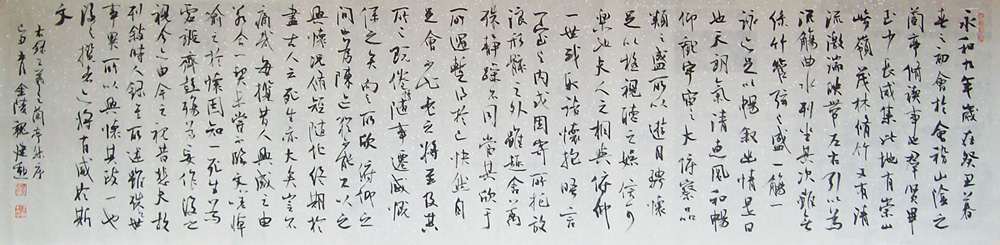 永和九年歲在癸丑暮
春之初會於會稽山陰之
蘭亭脩禊事也羣賢畢
至少長咸集此地有崇山
峻嶺茂林脩竹又有清
流激湍映帶左右引以為
流觴曲水列坐其次雖無
絲竹管弦之盛一觴一
詠亦足以暢敘幽情是日
也天朗氣清惠風和暢
仰觀宇宙之大俯察品
類之盛所以遊目騁懷
足以極視聽之娛信可
樂也夫人之相與俯仰
一世或取諸懷抱晤言
一室之內或因寄所托放
浪形骸之外雖趣舍萬
殊靜躁不同當其欣于
所遇暫得於己快然自
足曾不知老之將至及其
所之既倦情隨事遷感慨
係之矣向之所欣俯仰之
間以為陳迹猶不能不以之
興懷況脩短隨化終期於
盡古人云死生亦大矣豈不
痛哉每攬昔人興感之由
若合一契未嘗不臨文嗟悼
喻之於懷固知一死生為
虛誕齊彭殤為妄作後之
視今亦由今之視昔悲夫故
列敘時人錄其所述雖殊世
事異所以興懷其致一也
後之攬者亦將有感於斯
文
右錄王羲之蘭亭集序
金陵魏